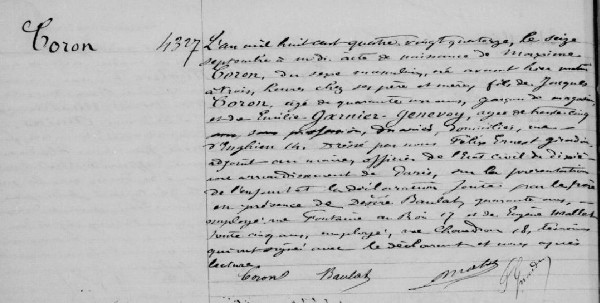 Coron
4327
L'an mil huit cent quatre vingt quatorze, le seize
septembre à midi acte de naissance de Maxime
Coron, du sexe masculin, né avant hier matin
à trois heures chez ses père et mère; fils de Jacques
Coron, agé de quarante ans, garçon de magasin,
et de Emilie Garnier-Genevoy, agée de trente cinq
ans, sans profession, mariés, domiciliés, rue
d'Enghien 14. Dressé par nous Félix Ernest
adjoint au maire, officier de l'Etat civil du dixiè-
me arrondissement de Paris, sur la présentation
de l'enfant et la déclaration faite par le père
en présence de Désiré Baulat, quarante ans,
employé, rue Fontaine au Roi 17 et de Eugène
trente cinq ans, employé, rue Chaudron 18, témoins
qui ont signé avec le déclarant et nous après
lecture.
Coron Baulat